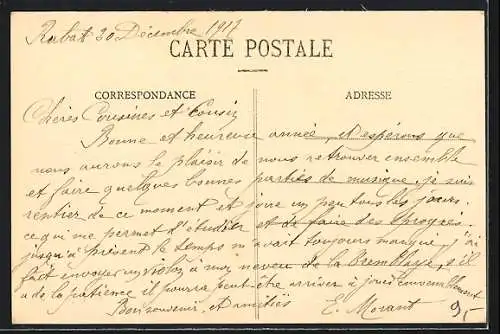 Rabat 30 Décembre 1917
CARTE POSTALE
CORRESPONDANCE
ADRESSE
Chères Cousines et Cousin
Bonne et heureuse année, et espérons que
nous aurons le plaisir de nous retrouver ensemble
et faire quelques bonnes parties de musique, je suis
rentier de ce moment et joue un peu tous les jours.
ce qui me permet d'étudier et de faire des progrès.
jusqu'à présent le temps m'avait toujours manqué, j'ai
fait envoyer un violon à mon neveu de la s'il
a de la patience il pourra peut-être arriver à jouer convenablement
Bon souvenir et amitiés E. Morant